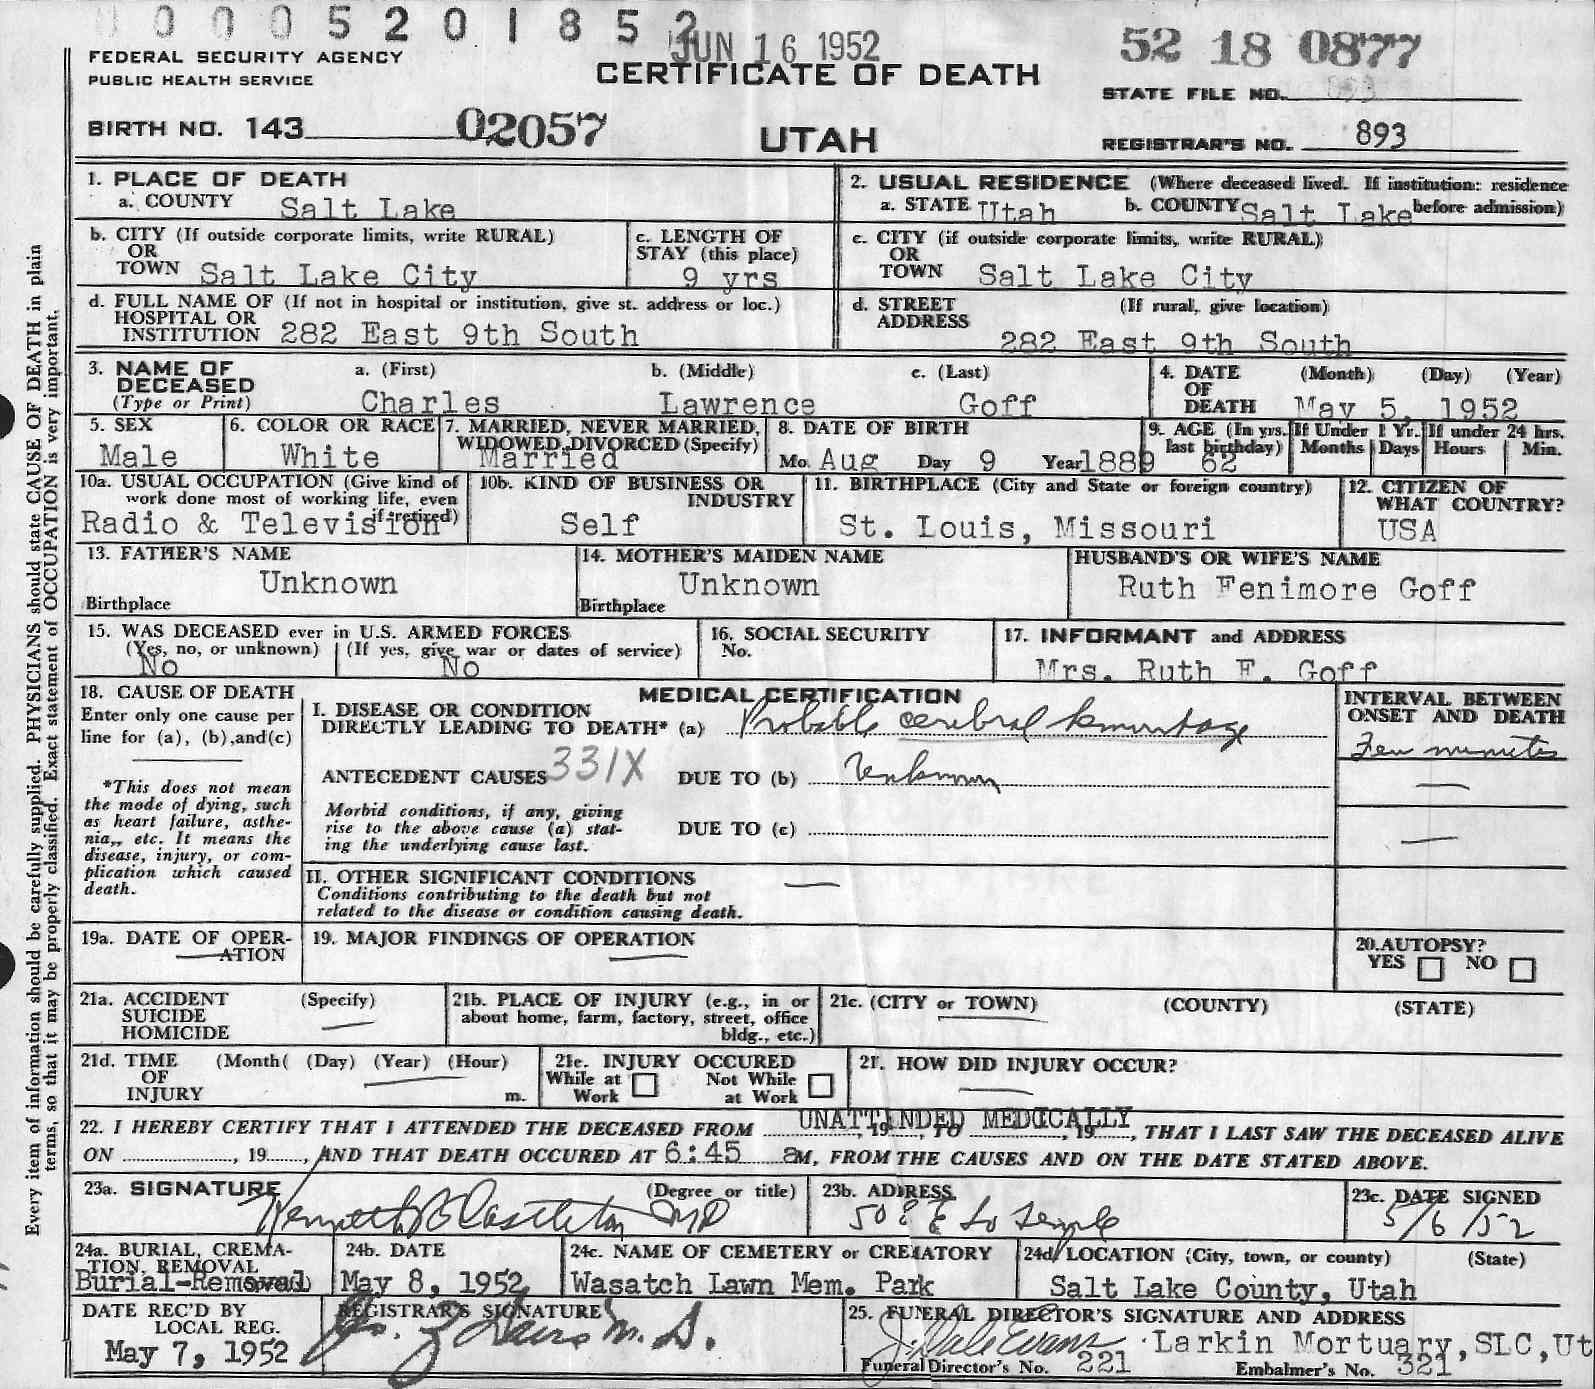 0 0 0 5 2 0 1 8 5 2
JUN 16 1952
52 18 0877
FEDERAL SECURITY AGENCY
PUBLIC HEALTH SERVICE
CERTIFICATE OF DEATH
STATE FILE NO.
BIRTH NO. 143 02057
UTAH
REGISTRAR'S NO. 893
1. PLACE OF DEATH
a. COUNTY Salt Lake
2. USUAL RESIDENCE (Where deceased lived. If institution: residence before admission)
a. STATE Utah b. COUNTY Salt Lake
b. CITY (If outside corporate limits, write RURAL)
OR
TOWN Salt Lake City
c. LENGTH OF
STAY (this place)
9 yrs
c. CITY (if outside corporate limits, write RURAL)
OR
TOWN Salt Lake City
d. FULL NAME OF (If not in hospital or institution, give st. address or loc.)
HOSPITAL OR
INSTITUTION 282 East 9th South
d. STREET (If rural, give location)
ADDRESS
282 East 9th South
3. NAME OF DECEASED
(Type or Print)
a. (First) b. (Middle) c. (Last)
Charles Lawrence Goff
4. DATE OF DEATH (Month) (Day) (Year)
May 5, 1952
5. SEX
Male
6. COLOR OR RACE
White
7. MARRIED, NEVER MARRIED,
WIDOWED, DIVORCED (Specify)
Married
8. DATE OF BIRTH
Mo. Aug Day 9 Year 1889
9. AGE (In yrs. last birthday) 62
If Under 1 Yr. Months Days
If under 24 hrs. Hours Min.
10a. USUAL OCCUPATION (Give kind of
work done most of working life, even
if retired)
Radio & Television
10b. KIND OF BUSINESS OR
INDUSTRY
Self
11. BIRTHPLACE (City and State or foreign country)
St. Louis, Missouri
12. CITIZEN OF
WHAT COUNTRY?
USA
13. FATHER'S NAME
Unknown
Birthplace
14. MOTHER'S MAIDEN NAME
Unknown
Birthplace
HUSBAND'S OR WIFE'S NAME
Ruth Fenimore Goff
15. WAS DECEASED ever in U.S. ARMED FORCES
(Yes, no, or unknown) (If yes, give war or dates of service)
No No
16. SOCIAL SECURITY
No.
17. INFORMANT and ADDRESS
Mrs. Ruth F. Goff
18. CAUSE OF DEATH
Enter only one cause per
line for (a), (b),and(c)
*This does not mean
the mode of dying, such
as heart failure, asthe-
nia,, etc. It means the
disease, injury, or com-
plication which caused
death.
MEDICAL CERTIFICATION
I. DISEASE OR CONDITION
DIRECTLY LEADING TO DEATH* (a) Probable cerebral hemorrhage
ANTECEDENT CAUSES 331X DUE TO (b) Unknown
Morbid conditions, if any, giving
rise to the above cause (a) stat-
ing the underlying cause last.
DUE TO (c)
INTERVAL BETWEEN
ONSET AND DEATH
Few minutes
II. OTHER SIGNIFICANT CONDITIONS
Conditions contributing to the death but not
related to the disease or condition causing death.
19a. DATE OF OPER-
ATION
19. MAJOR FINDINGS OF OPERATION
20. AUTOPSY?
YES NO
21a. ACCIDENT (Specify)
SUICIDE
HOMICIDE
21b. PLACE OF INJURY (e.g., in or
about home, farm, factory, street, office
bldg., etc.)
21c. (CITY or TOWN) (COUNTY) (STATE)
21d. TIME (Month( (Day) (Year) (Hour)
OF
INJURY m.
21e. INJURY OCCURED
While at Work Not While at Work
21f. HOW DID INJURY OCCUR?
UNATTENDED MEDICALLY
22. I HEREBY CERTIFY THAT I ATTENDED THE DECEASED FROM , 19 , TO , 19 , THAT I LAST SAW THE DECEASED ALIVE
ON , 19 , AND THAT DEATH OCCURED AT 6:45 aM, FROM THE CAUSES AND ON THE DATE STATED ABOVE.
23a. SIGNATURE (Degree or title)
Kenneth B Castleton MD
23b. ADDRESS
508 E So Temple
23c. DATE SIGNED
5/6/52
24a. BURIAL, CREMA-
TION, REMOVAL
Burial-Removal
24b. DATE
May 8, 1952
24c. NAME OF CEMETERY or CREMATORY
Wasatch Lawn Mem. Park
24d. LOCATION (City, town, or county) (State)
Salt Lake County, Utah
DATE REC'D BY
LOCAL REG.
May 7, 1952
REGISTRAR'S SIGNATURE
M.D.
25. FUNERAL DIRECTOR'S SIGNATURE AND ADDRESS
J. Dale Evans Larkin Mortuary, SLC, Ut
Funeral Director's No. 221 Embalmer's No. 321
Every item of information should be carefully supplied. PHYSICIANS should state CAUSE OF DEATH in plain
terms, so that it may be properly classified. Exact statement of OCCUPATION is very important.